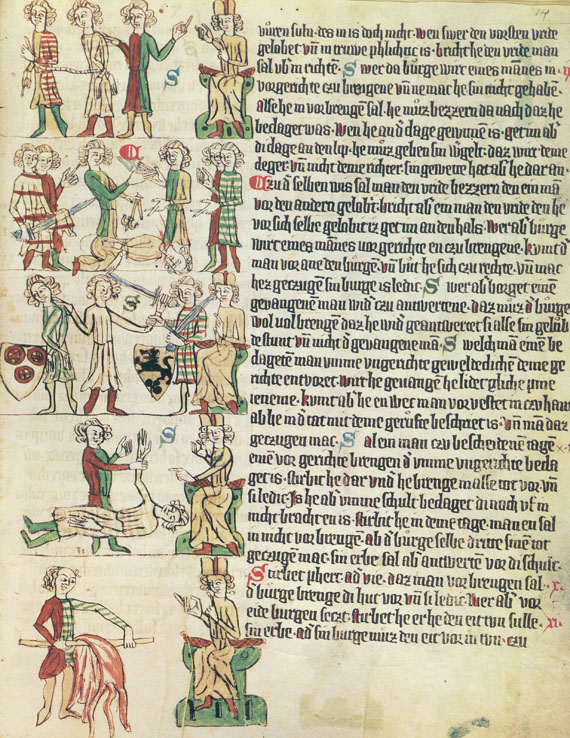 14
vůren suln. des in is doch nicht. wen swer den vorsten vride
gelobet. vñ in truwe phlichtic is. bricht he den vride man
sal vb̾ in richtē. Swer da bůrge wirt eines mānes in
vorgerichte czu brengene vñ ne mac he sin nicht gehabē.
alse he in vorbrengē sal. he můz bezzern da nach daz he
bedaget was. wen he an
di dage an den lip. he můz gebin sin w̾gelt. daz wirt deme
deger. vñ nicht deme richter. sin gewette hat alse he dar an.
selben wis sal man den vride bezzern den ein mā
vor den andern gelobt. bricht ab̾ ein man den vride den he
vor sich selbe gelobit iz get im an den hals. Wer ab̾ bůrge
wirt eines mānes vor gerichte en czu brengene. kumt d̾
man vor ane den bůrgē. vñ bůt he sich czu rechte. vñ mac
he z geczůgen sin burge is ledic. Swer ab̾ vorget einē
gevangenē man wid̾ czu antwertene. daz můz d̾ bůrge
wol volbrengē daz he wid̾ geantwertet si alse sin gelůb
de stunt vñ nicht d̾ gevangene mā. Swelch mā eine be
dagetē man vmme vngerichte geweldeclichē deme ge
richte entvoret. wirt he gevangē he lidet gliche pine
ieneme. kumt ab̾ he en wec man vor vestet in czu hant
ab he in d̾ tat mit deme gerůfte beschriet is. vñ mā daz
geczugen mac. Sal ein man czu bescheidenē tagē
einē vor gerichte brengen d̾ vmme vngerichte beda
get is. stirbit he dar vnd̾ he brenge in alse tot vor vñ
si ledic. Is he ab̾ vmme schult bedaget di noch vf in
nicht brachten is. stirbit he in deme tage. man en sal
in nicht vor brengē. ab d̾ bůrge selbe dritte sinē tot
geczugē mac. sin erbe sal ab̾ antwertē vor di schult.
Stirbet phert ad̾ vie. daz man vor brengen sal.
d̾ bůrge brenge di hut vor vñ si ledic. Wer ab̾ vor
eide burgen seczt. stirbet he er he den eit tun sulle.
sin erbe. ad̾ sin burge můz den eit vor in tun. czu
x.
xi.